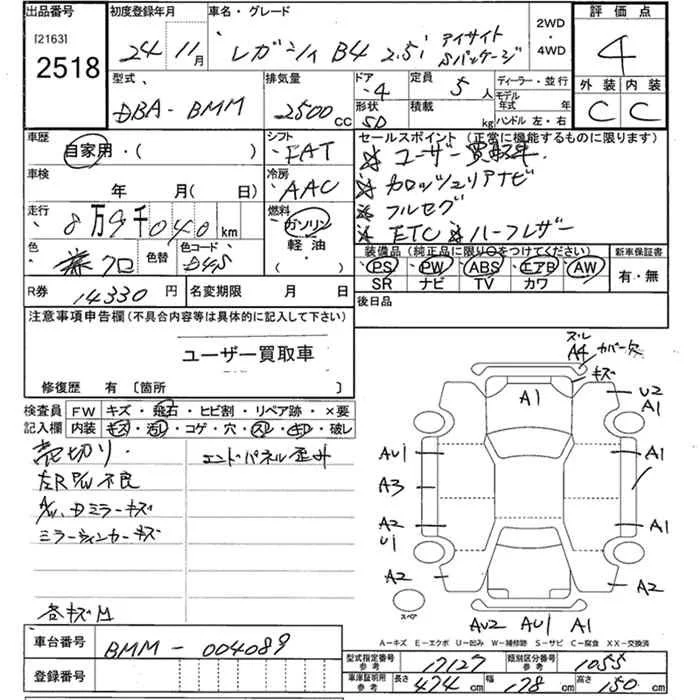 出品番号
[2163]
2518
初度登録年月
24 11月
車名・グレード
レガシィ B4 2.5i アイサイト
Sパッケージ
2WD
・
4WD
評価点
4
外装 内装
C C
型式
DBA-BMM
排気量
2500cc
ドア
4
形状
SD
定員
5人
積載
kg
ディーラー・並行
モデル
年式 年
ハンドル 左・右
車歴
自家用・( )
シフト
FAT
セールスポイント (正常に機能するものに限ります)
ユーザー買取車.
カロッツェリアナビ
フルセグ
ETC ハーフレザー
車検
年 月(日)
冷房
AAC
走行
8万9千040km
燃料
ガソリン
軽油・
( )
色
クロ
色替
色コード
D4S
装備品 (純正品に限り○をつけてください)
PS PW ABS エアB AW
SR ナビ TV カワ
新車保証書
有・無
R券
14330円
名変期限 月 日
後日品
注意事項申告欄(不具合内容等は具体的に記入して下さい)
ユーザー買取車
修復歴 有 〔箇所 〕
検査員
記入欄
FW キズ・飛石・ヒビ割・リペア跡・×要
内装 キズ・汚レ・コゲ・穴・スレ・キレ・破レ
売切り
左R P/W不良
A/W、Dミラーキズ
ミラーウィンカーキズ
各キズM
エンドパネル歪み
ズレ
A4 カバー欠
キズ
A1
U2
A1
AU1
A1
A3
A2
U1
A1
A2
A2
スペア
AU2 AU1 A1
A-キズ E-エクボ U-凹み W-補修跡 S-サビ C-腐食 XX-交換済
車台番号
BMM-004089
登録番号
型式指定番号
参考
17127
類別区分番号
参考
1055
車庫証明用
参考
長さ 474cm 幅 178cm 高さ 150cm